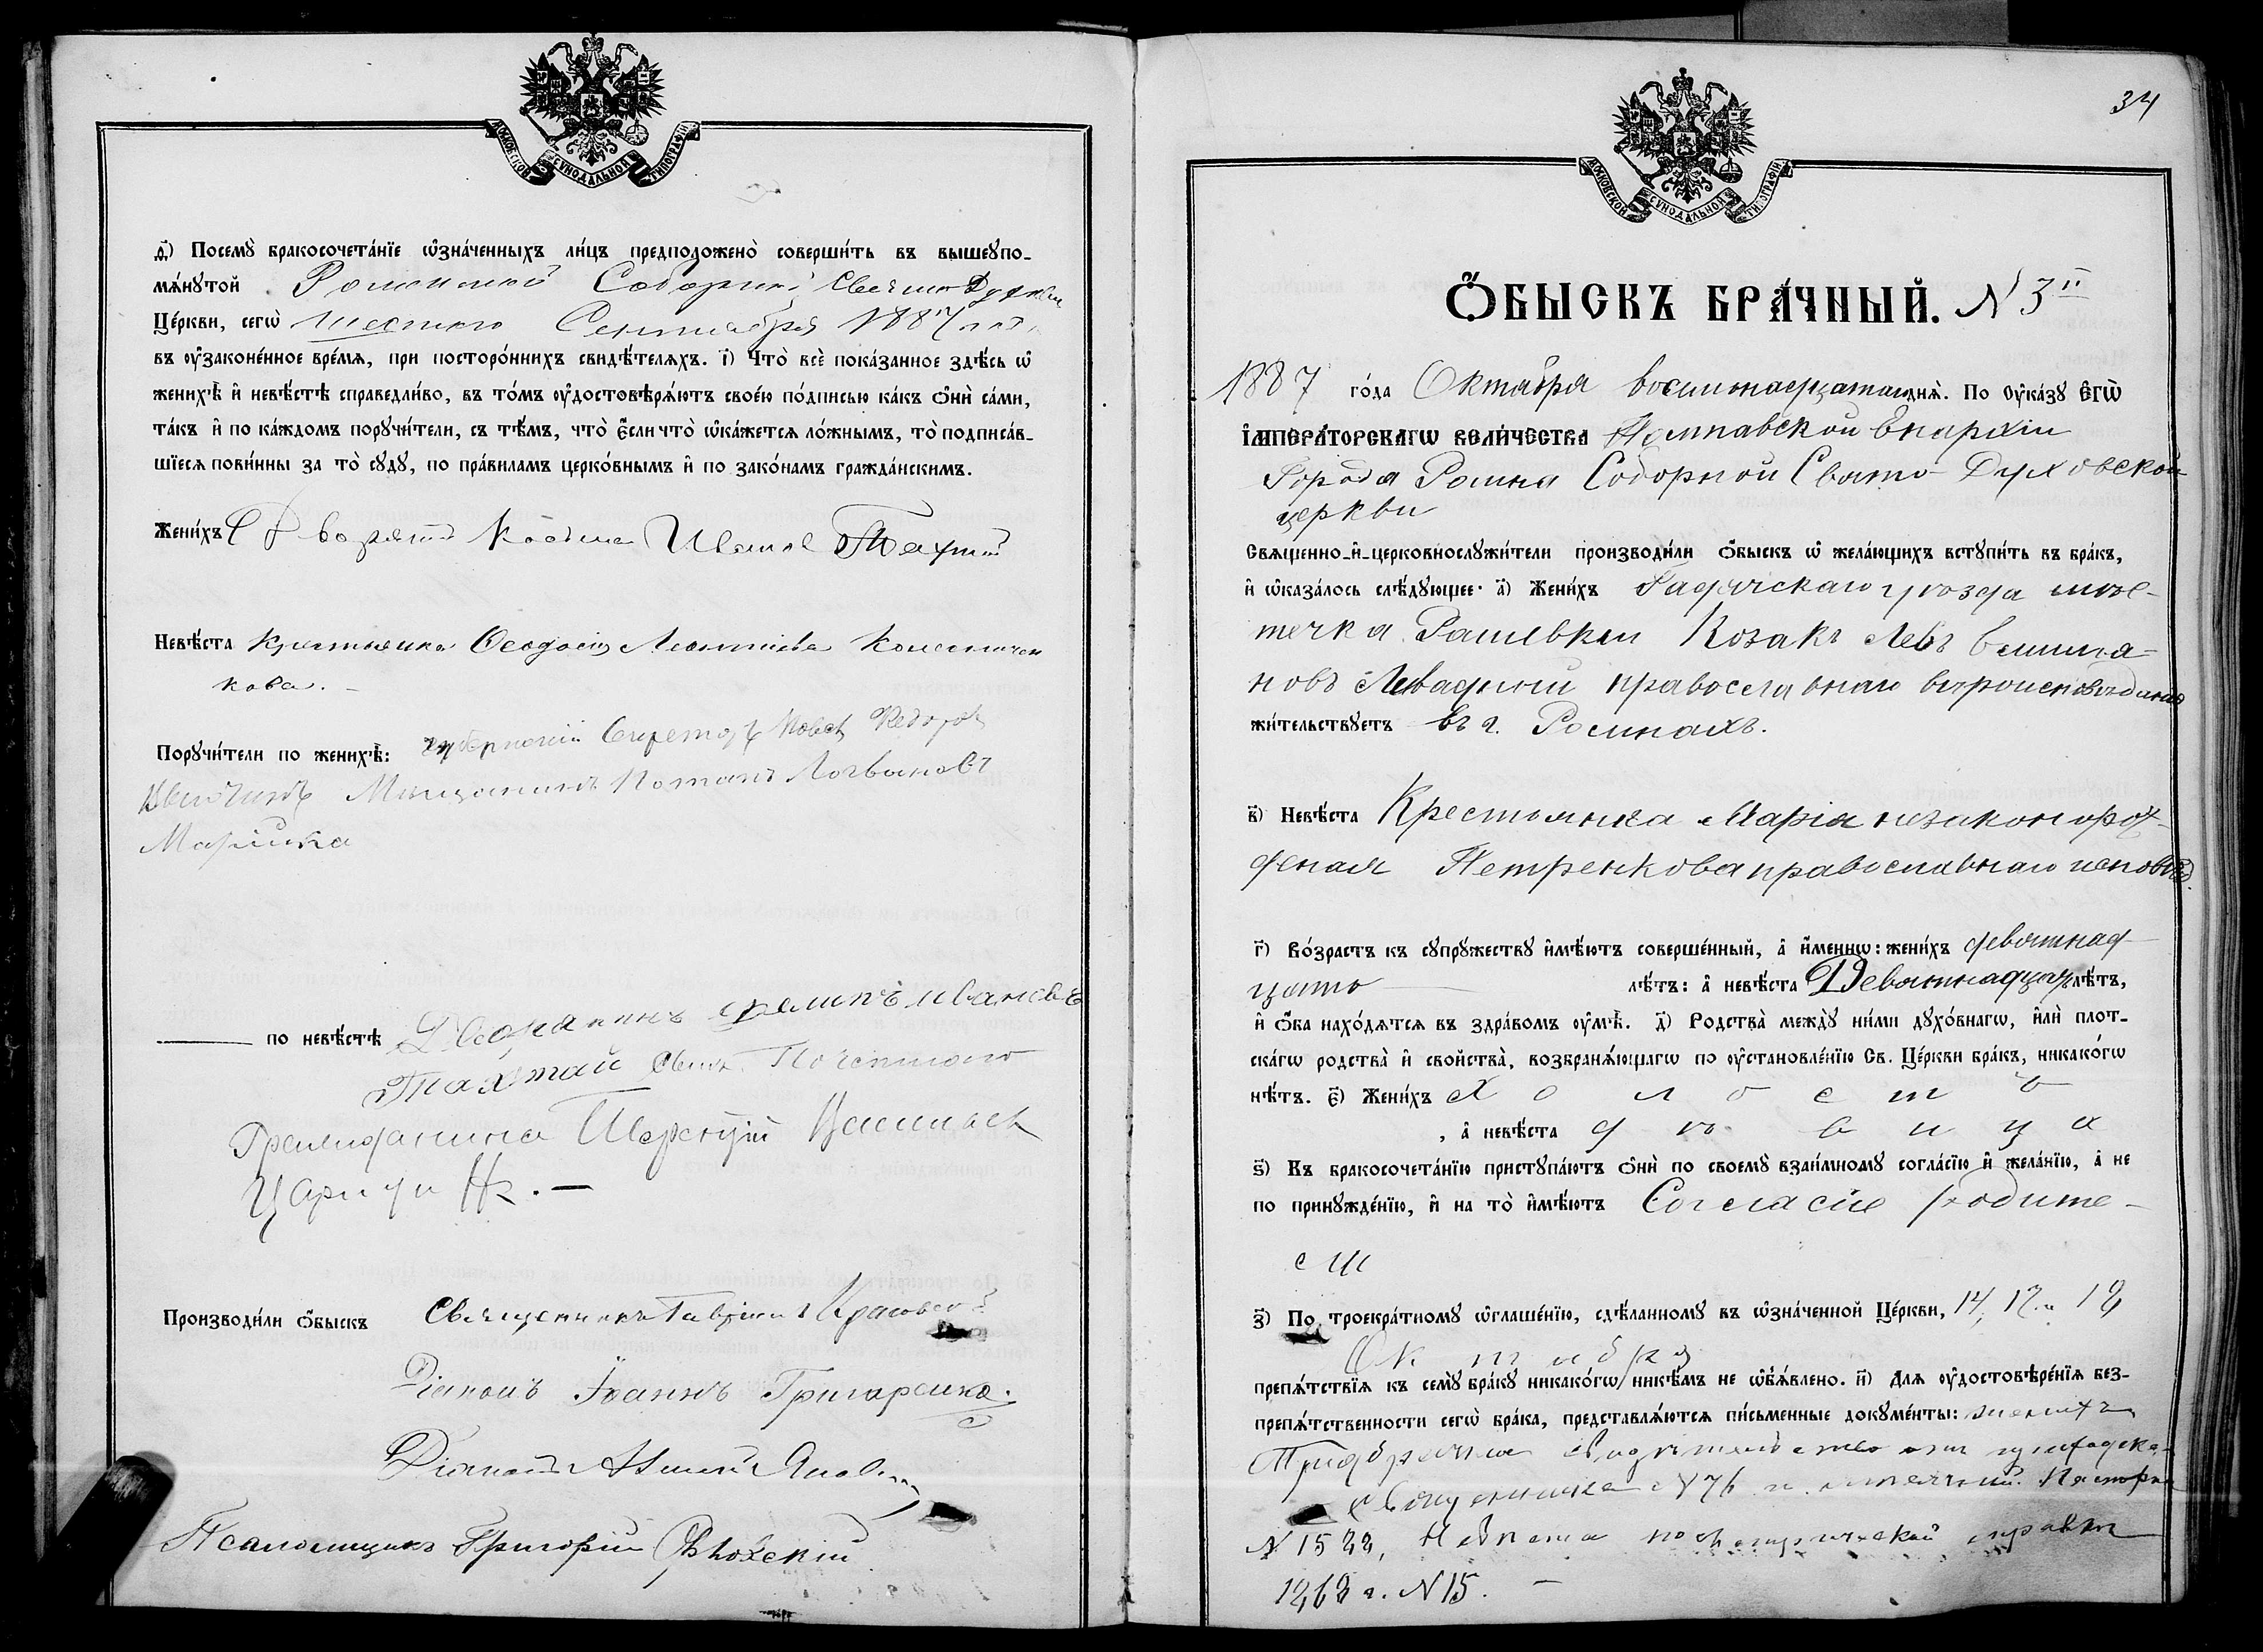 МОСКОВСКОЙ СѴНОДАЛЬНОЙ ТИПОГРАФІИ
ѳ҃) Посемꙋ̀ бракосочета́нїе ѡ҆зна́ченныхъ ли́цъ предположено̀ соверши́ть въ вышеꙋпо-
мѧ́нꙋтой Роменской Соборной Свято Духовской
Це́ркви, сегѡ̀ шестого Сентября 1887 года
въ ᲂу҆законе́нное вре́мѧ, при посторо́ннихъ свидѣ́телѧхъ. і҃) Что̀ всѐ пока́занное здѣ́сь ѡ҆
женихѣ̀ и҆ невѣ́стѣ справедли́во, въ то́мъ ᲂу҆достовѣрѧ́ютъ свое́ю по́дписью ка́къ ѻ҆нѝ са́ми,
та́къ и҆ по ка́ждомъ порꙋчи́тели, съ тѣ́мъ, что̀ є҆́сли что̀ ѡ҆ка́жетсѧ ло́жнымъ, то̀ подписа́в-
шїесѧ пови́нны за то̀ сꙋдꙋ̀, по пра́виламъ церко́внымъ и҆ по зако́намъ гражда́нскимъ.
Жени́хъ Ивановъ Тахтай
Невѣ́ста Крестьянка Ѳеодосія Леонтіева Колесничен
кова. -
Порꙋчи́тели по женихѣ̀: Губернскій Секретарь Ѳедоров
Мѣщанинъ Потапъ Логвиновъ
Марійка
по невѣ́стѣ Дворянинъ Ивановъ
Тахтай Сынъ Почетного
Гражданина Василіевъ
Производи́ли ѻ҆́быскъ Священникъ Гавріилъ Красовскій
Діаконъ Іоаннъ Григоренко.
Діаконъ
Псаломщикъ Григорій
34
МОСКОВСКОЙ СѴНОДАЛЬНОЙ ТИПОГРАФІИ
Ѻ҆́БЫСКЪ БРА́ЧНЫЙ. N 3
1887 го́да Октября восимнадцатаго днѧ̀. По ᲂу҆ка́зꙋ Є҆ГѠ̀
І҆МПЕРА́ТОРСКАГѠ ВЕЛИ́ЧЕСТВА Полтавской Епархіи
Города Ромна Соборной Свято-Духовской
церкви
Свѧще́нно-и҆-церковнослꙋжи́тели производи́ли ѻ҆́быскъ ѡ҆ жела́ющихъ встꙋпи́ть въ бра́къ,
и҆ ѡ҆каза́лось слѣ́дꙋющее: а҃) Жени́хъ Гадячскаго уѣзда мѣс-
течка Рашевки Козакъ Левъ Емилія-
новъ Левадний православнаго вѣроисповѣданія
жи́тельствꙋетъ въ г. Ромнахъ.
в҃) Невѣ́ста Крестьянка Марія незаконорож-
деная Петренкова православнаго исповѣд.
г҃) Во́зрастъ къ сꙋпрꙋ́жествꙋ и҆мѣ́ютъ соверше́нный, а҆ и҆́менно: жени́хъ девятнад-
цать лѣ́тъ: а҆ невѣ́ста Девятнадцать лѣ́тъ,
и҆ ѻ҆́ба нахо́дѧтсѧ въ здра́вомъ ᲂу҆мѣ̀. д҃) Родства̀ междꙋ̀ ни́ми дꙋхо́внагѡ, и҆лѝ плот-
ска́гѡ родства̀ и҆ свойства̀, возбранѧ́ющагѡ по ᲂу҆становле́нїю Св. Це́ркви бра́къ, никако́гѡ
нѣ́тъ. є҃) Жени́хъ холостъ
, а҆ невѣ́ста дѣвица
ѕ҃) Къ бракосочета́нїю пристꙋпа́ютъ ѻ҆нѝ по своемꙋ̀ взаи́мномꙋ согла́сїю и҆ жела́нїю, а҆ не
по принꙋжде́нїю, и҆ на то̀ и҆мѣ́ютъ Согласіе родите-
лей
з҃) По троекра́тномꙋ ѡ҆глаше́нїю, сдѣ́ланномꙋ въ ѡ҆зна́ченной Це́ркви, 14, 17 и 18
Октября
препѧ́тствїѧ къ семꙋ̀ бра́кꙋ никако́гѡ никѣ́мъ не ѡ҆б̾ѧ́влено. и҃) Длѧ ᲂу҆достовѣре́нїѧ без-
препѧ́тственности сегѡ̀ бра́ка, представлѧ́ютсѧ пи́сьменные докꙋме́нты: жениха
Предбрачна свидѣтельство отъ
священника N 76 и
N 1522, Невѣста по метрической справки
1868 г. N 15. -